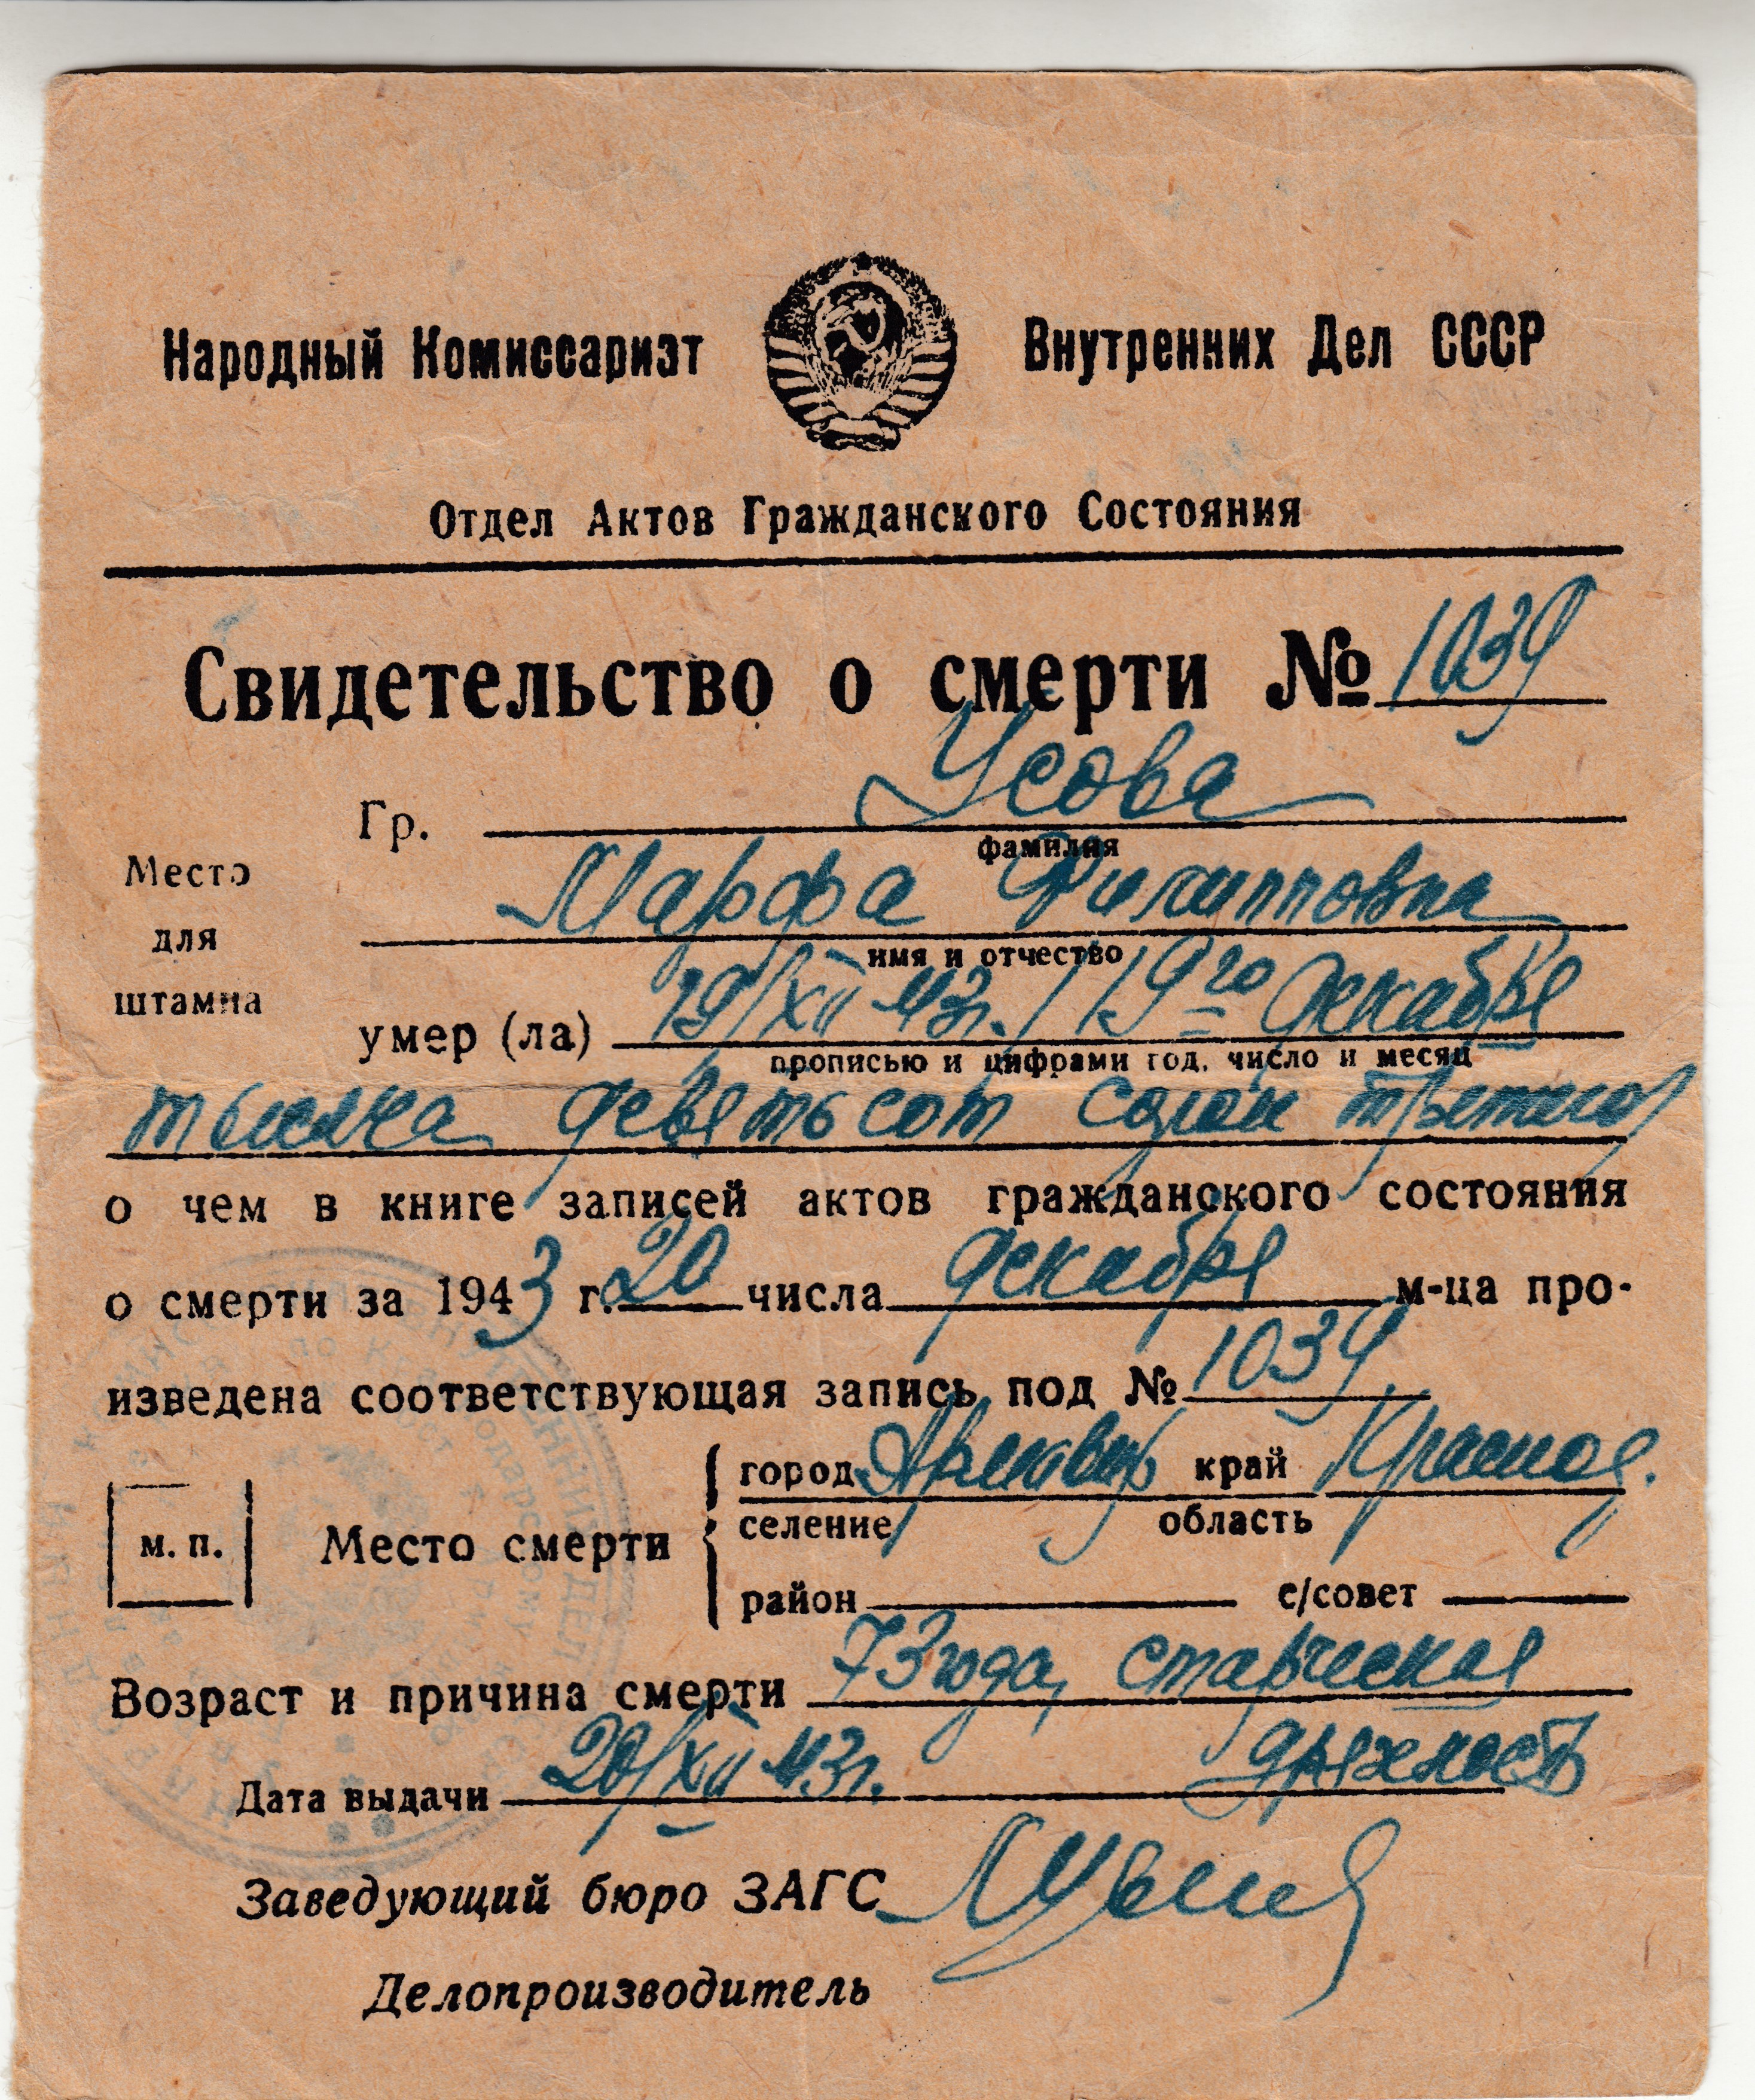 Народный Комиссариат Внутренних Дел СССР
Отдел Актов Гражданского Состояния
Свидетельство о смерти № 1039
Гр. Усова
фамилия
Марфа Филипповна
имя и отчество
Место для штампа
умер (ла) 19/XII 43г. / 19го декабря
прописью и цифрами год, число и месяц
тысяча девятьсот сорок третьего
о чем в книге записей актов гражданского состояния
о смерти за 1943 г. 20 числа декабря м-ца про-
изведена соответствующая запись под № 1039
город Армавир край Краснод.
селение область
м. п. Место смерти
район с/совет
Возраст и причина смерти 73 года, старческая
дряхлость
Дата выдачи 20/XII 43г.
Заведующий бюро ЗАГС
Делопроизводитель